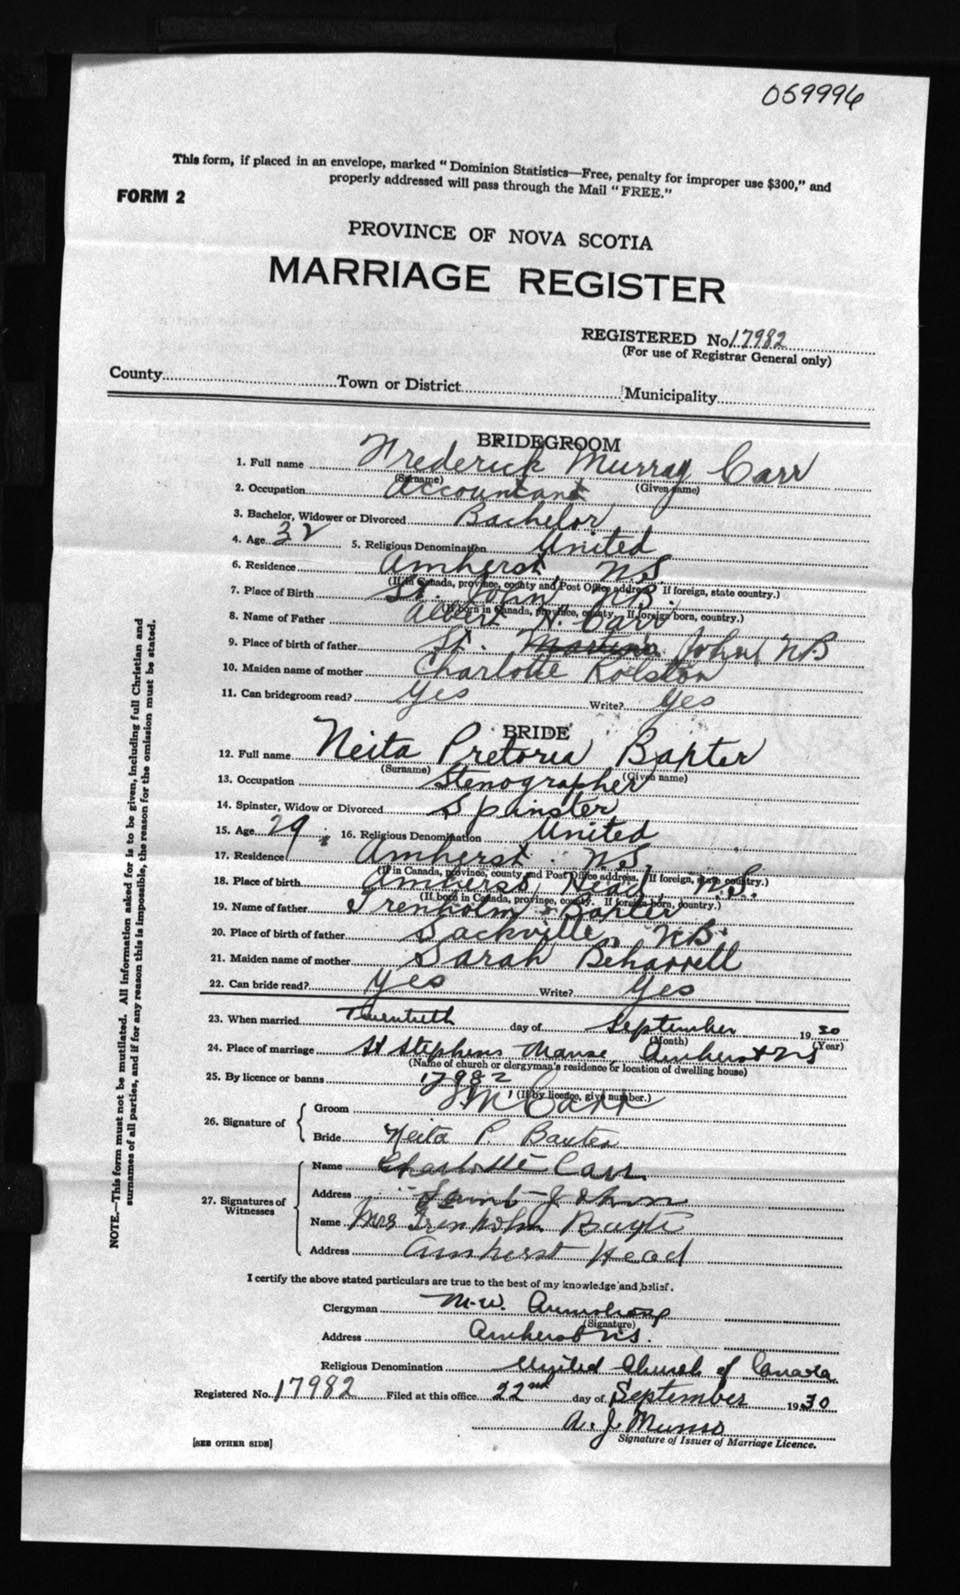 059996
This form, if placed in an envelope, marked "Dominion Statistics—Free, penalty for improper use $300," and
properly addressed will pass through the Mail "FREE."
FORM 2
PROVINCE OF NOVA SCOTIA
MARRIAGE REGISTER
REGISTERED No. 17982
(For use of Registrar General only)
County Town or District Municipality
BRIDEGROOM
1. Full name Frederick Murray Carr
(Surname) (Given name)
2. Occupation Accountant
3. Bachelor, Widower or Divorced Bachelor
4. Age 32 5. Religious Denomination United
6. Residence Amherst, N.S.
(If in Canada, province, county and Post Office address. If foreign, state country.)
7. Place of Birth St. John, N.B.
(If born in Canada, province, county. If foreign born, country.)
8. Name of Father Albert H. Carr
9. Place of birth of father St. Martins John NB
10. Maiden name of mother Charlotte Rolston
11. Can bridegroom read? Yes Write? Yes
BRIDE
12. Full name Neita Pretoria Baxter
(Surname) (Given name)
13. Occupation Stenographer
14. Spinster, Widow or Divorced Spinster
15. Age 29 16. Religious Denomination United
17. Residence Amherst N.S.
(If in Canada, province, county and Post Office address. If foreign, state country.)
18. Place of birth Amherst Head, N.S.
(If born in Canada, province, county. If foreign born, country.)
19. Name of father Trenholm Baxter
20. Place of birth of father Sackville, N.B.
21. Maiden name of mother Sarah Beharrell
22. Can bride read? Yes Write? Yes
23. When married Twentieth day of September 1930
(Month) (Year)
24. Place of marriage St Stephens Manse, Amherst NS
(Name of church or clergyman's residence or location of dwelling house)
25. By licence or banns 17982
(If by licence, give number.)
26. Signature of Groom Carr
Bride Neita P. Baxter
27. Signatures of Witnesses Name Charlotte Carr
Address Saint John
Name Mrs Trenholm Baxter
Address Amherst Head
I certify the above stated particulars are true to the best of my knowledge and belief.
Clergyman M.W. Armstrong
(Signature)
Address Amherst NS.
Religious Denomination United Church of Canada
Registered No. 17982 Filed at this office 22nd day of September 1930
A. J. Munro
Signature of Issuer of Marriage Licence.
[SEE OTHER SIDE]
NOTE.—This form must not be mutilated. All information asked for is to be given, including full Christian and
surnames of all parties, and if for any reason this is impossible, the reason for the omission must be stated.